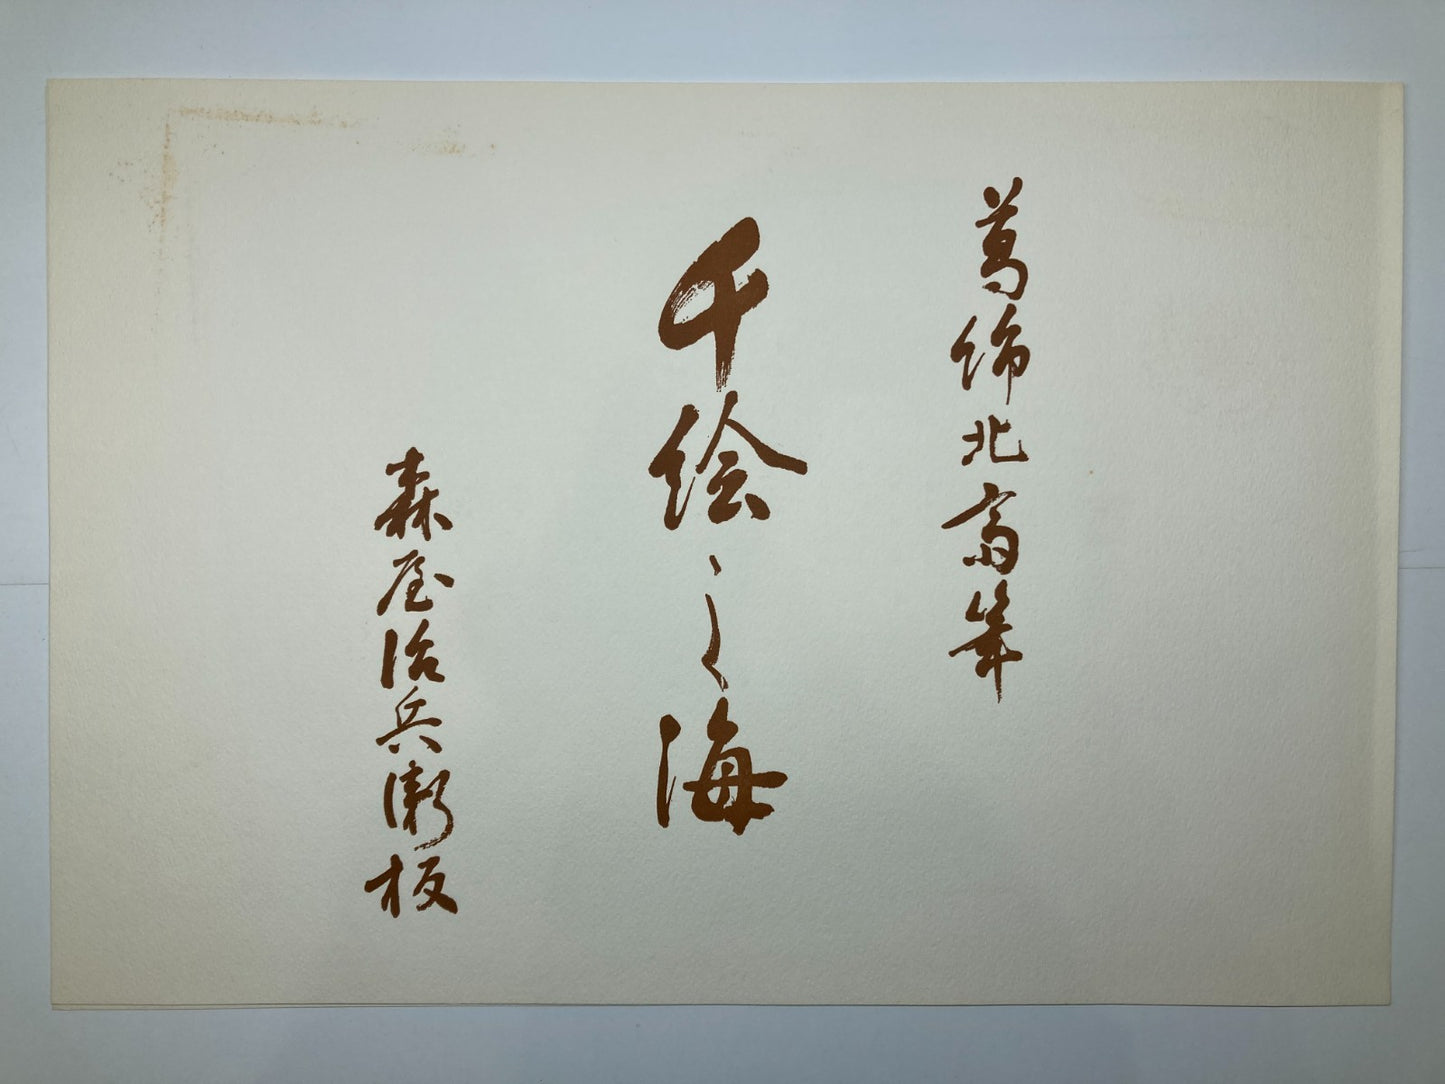 葛飾北斎筆
千絵之海
森屋治兵衛板